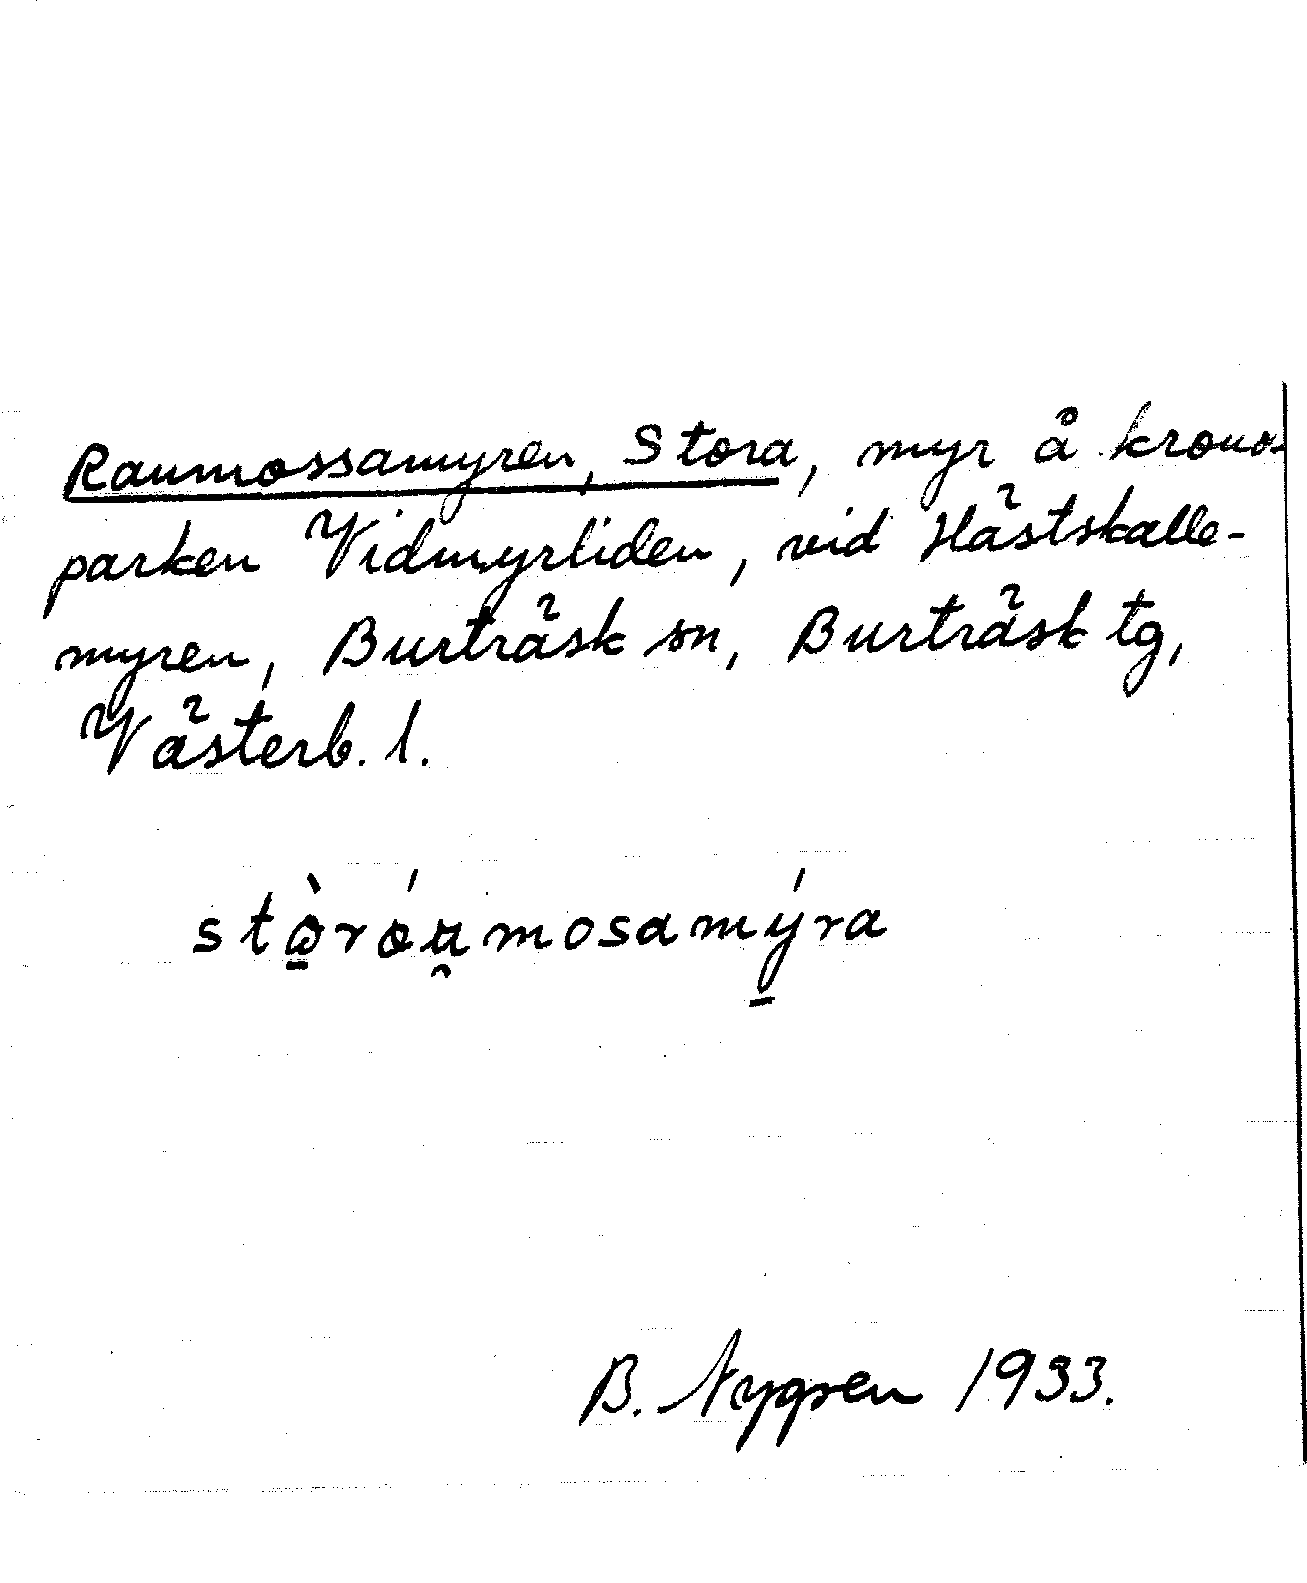 Raumossamyren, Stora, myr å krono-
parken Vidmyrliden, vid Hästskalle-
myren, Burträsk sn, Burträsk tg,
Västerb. l.
stò̱róu̯mosamý̱ra
B. Nygren 1933.